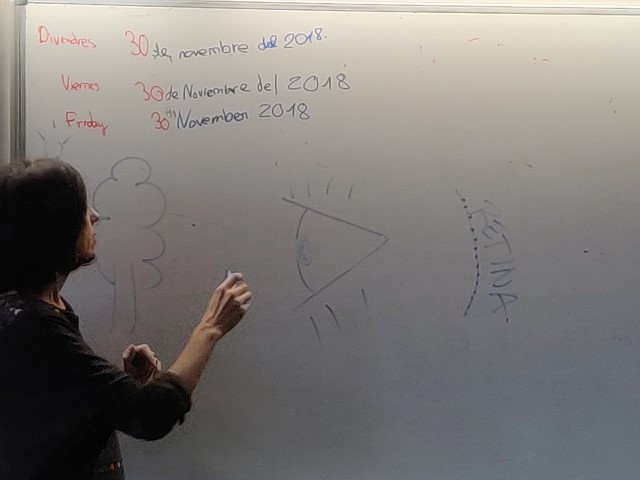 Divendres 30 de novembre del 2018.
Viernes 30 de Noviembre del 2018
Friday 30th November 2018
RETINA